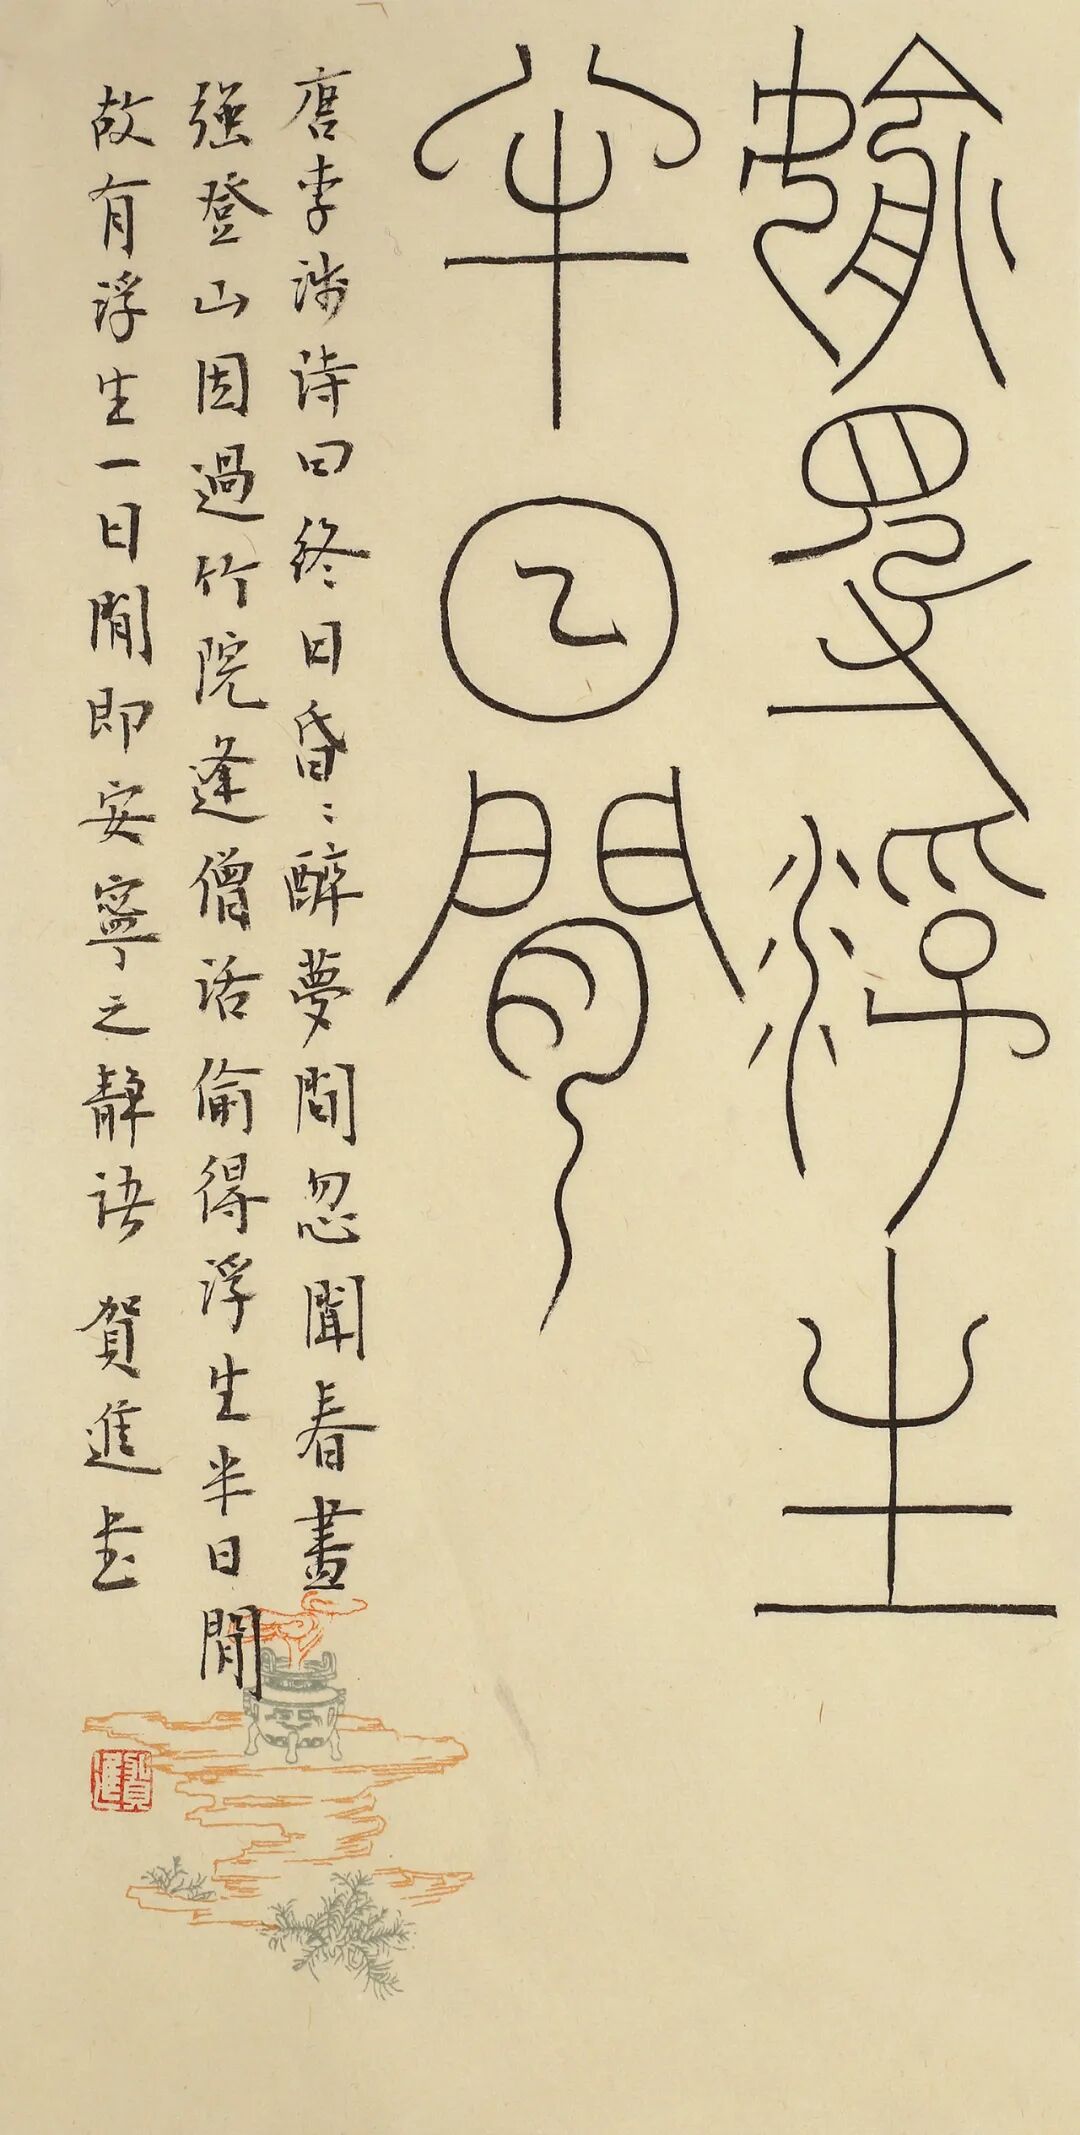 媮得浮生
半日閒
唐李涉詩曰終日昏〻醉夢間忽聞春盡
强登山因過竹院逢僧話偷得浮生半日閒
故有浮生一日閒即安寧之靜語 賀進書
賀進